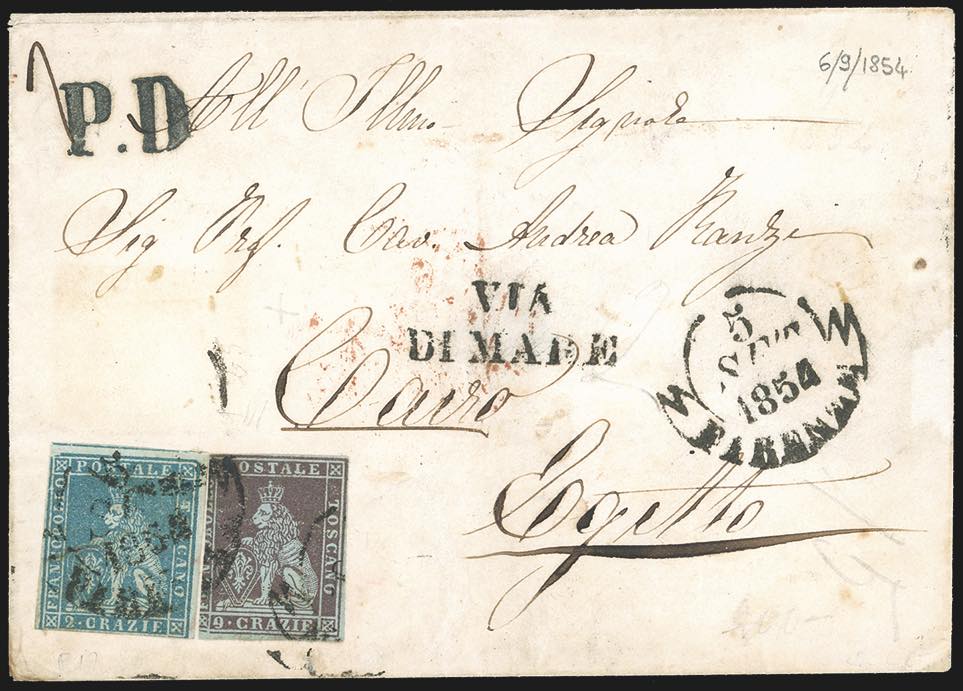 6/9/1854
P.D
All' Illmo Signore
Sig Prof. Cav. Andrea Ranzi
VIA
DI MARE
Cairo
Egitto
5
SETT
1854
FIRENZE
POSTALE
FRANCOBOLLO
TOSCANO
2 · CRAZIE
1854
POSTALE
TOSCANO
9 · CRAZIE